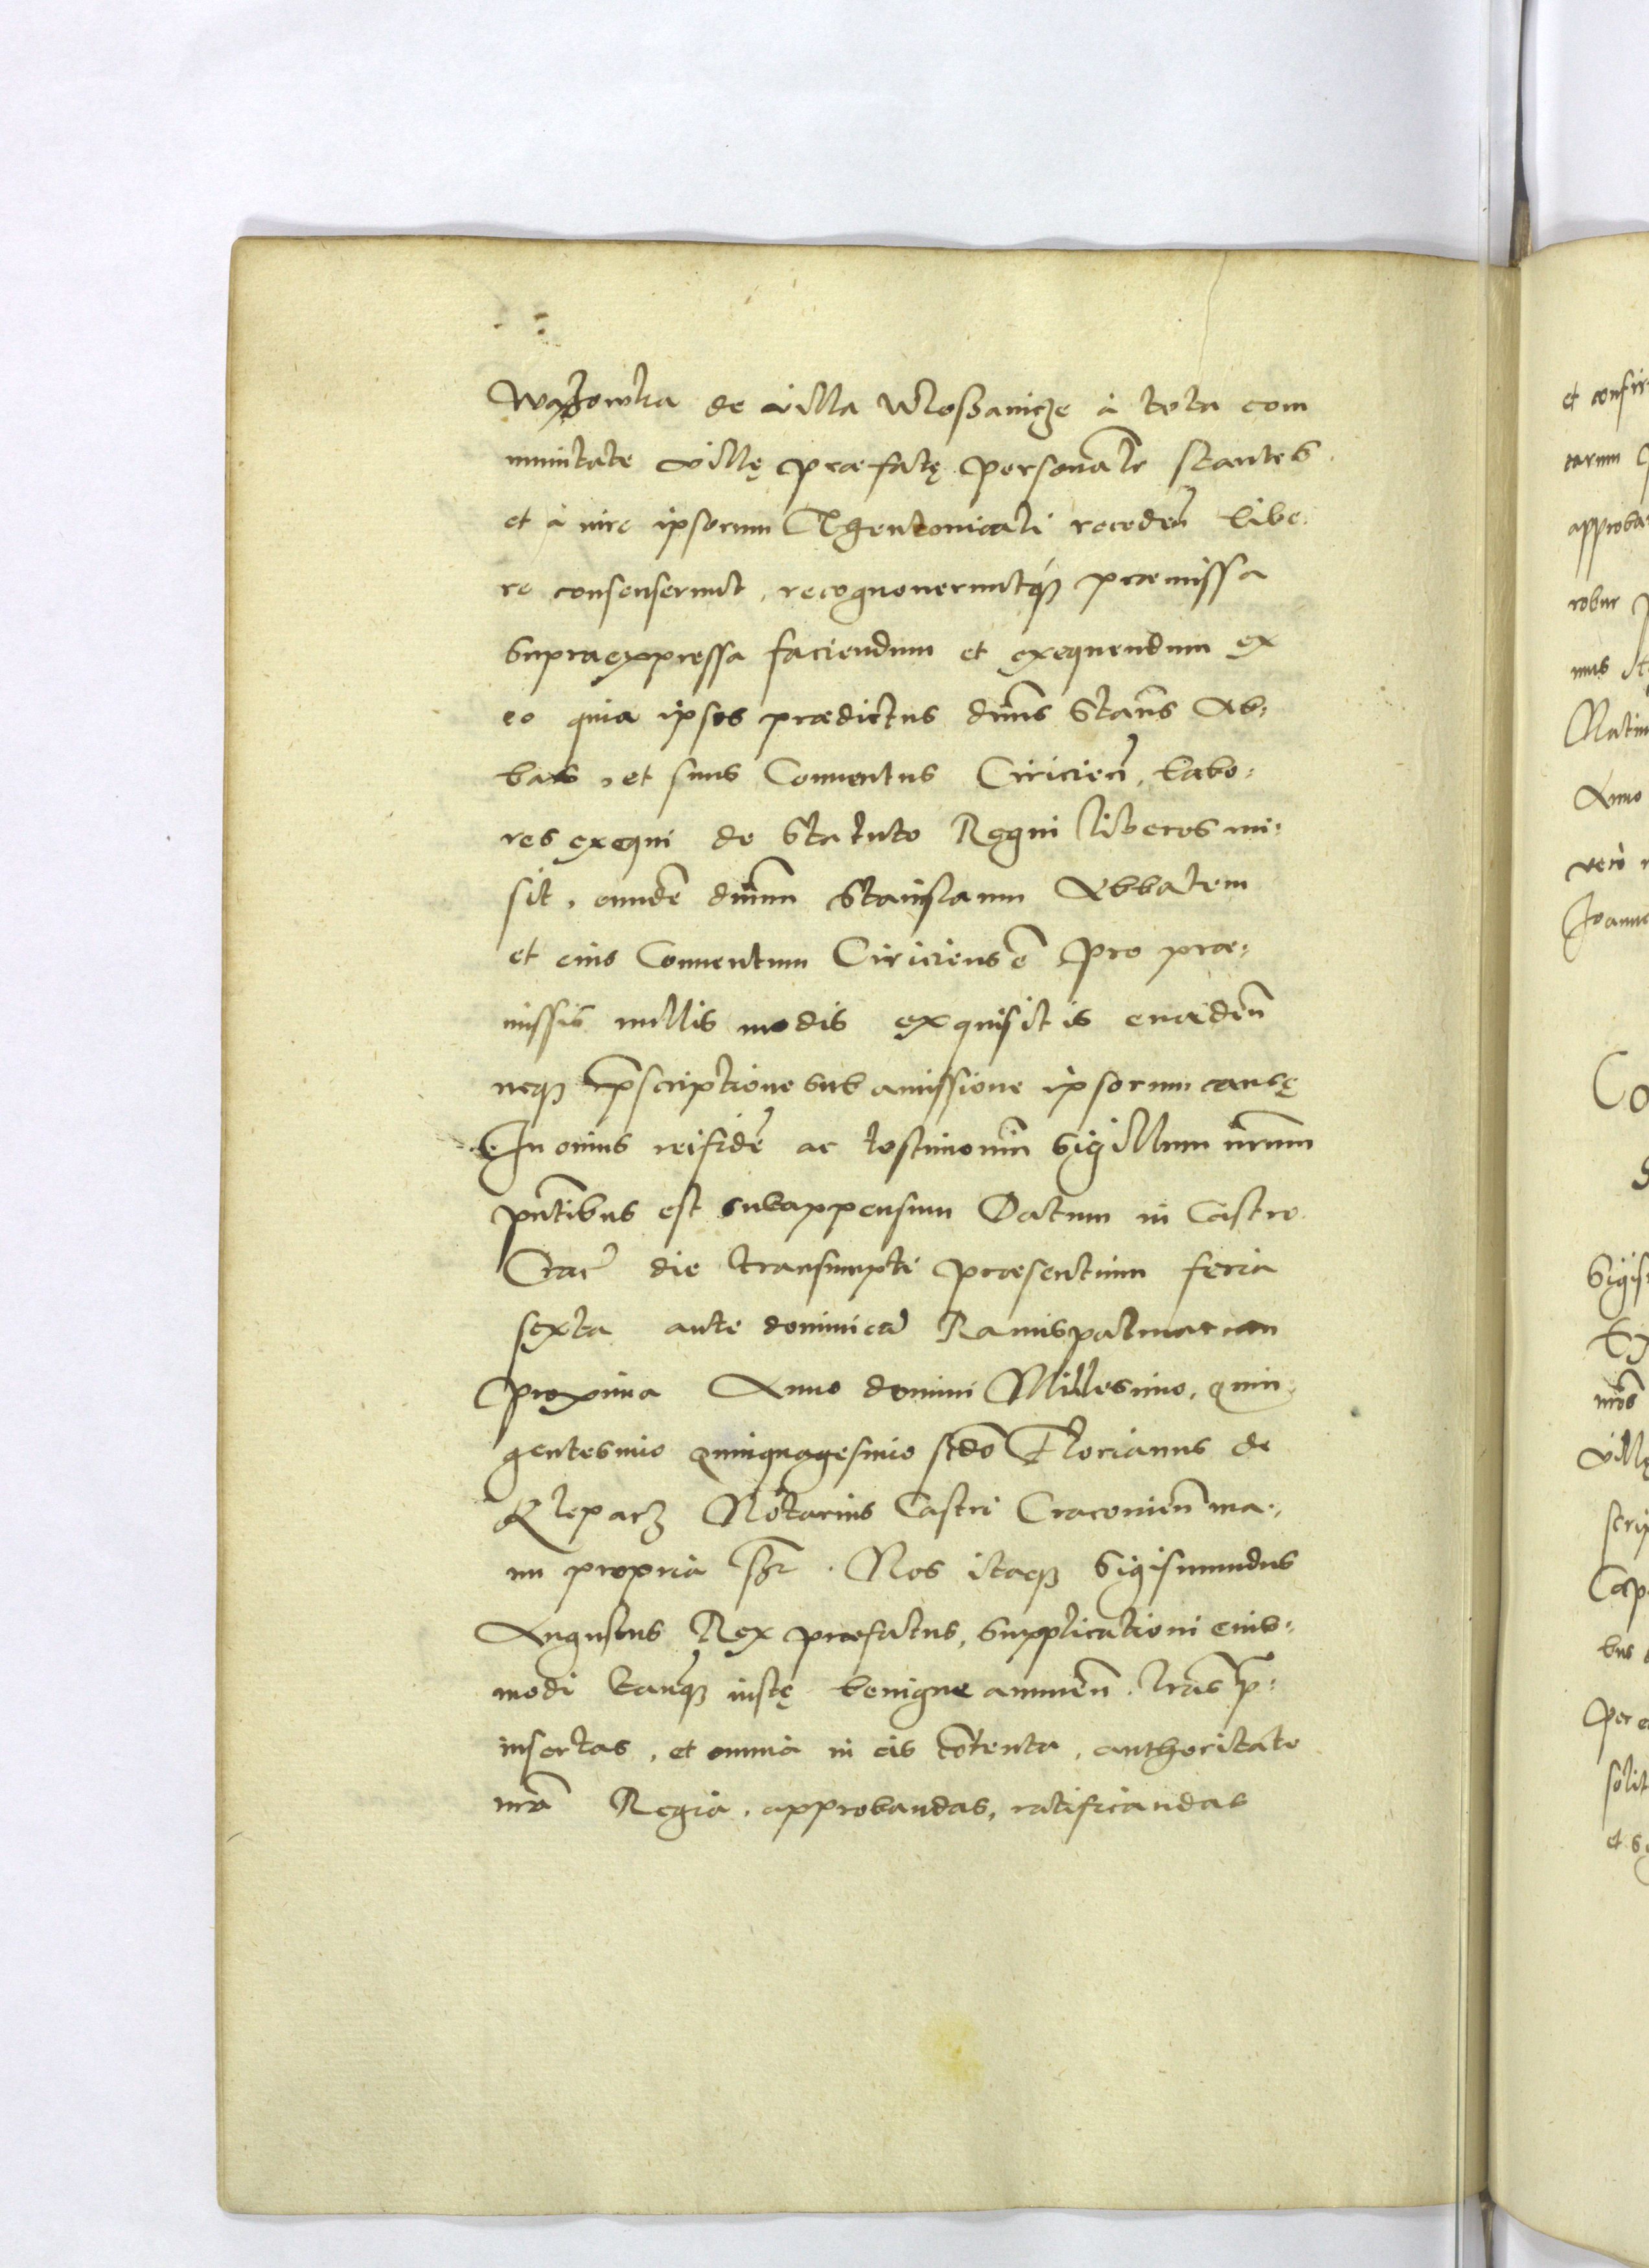 de villa Wloßanicze à tota com
munitate villę præfatę personalr stantes
et à iure ipsorum Theutonicali recedeñ libe:
re consenserunt, recognoueruntq́3 præmissa
supraexpressa faciendum et exequendum ex
eo quia ipsos prædictus dnus Stans Ab:
bas, et suus Conuentus Ciricień, labo:
res exequi de Statuto Regni liberos mi:
sit, eundē dnum Stanislaum Abbatem
et eius Conuentum Ciriciensē pro præ:
missis nullis modis exquisitis euadeñ
neq3 pscriptione sub amissione ipsorum causę
In cuius rei fidē ac testimoniū Sigillum nrum
pntibus est subappensum Datum in Castro
Crač die transumpti præsentium feria
sexta ante dominicā Ramispalmarum
proxima Anno domini Millesimo, quin
gentesimo quinquagesimo scdo Florianus de
Kleparz Notarius Castri Cracouień ma:
nu propria sst. Nos itaq3 Sigismundus
Augustus Rex præfatus, supplicationi eius:
modi tanq3 iustę benigne annueñ. lras p:
insertas, et omnia in eis cōtenta, authoritate
nra Regia, approbandas, ratificandas
et confir
tarum
approba
robur
mus
Anno
vero
Joanne
Co
Sigis
villę
scrip
Cap
bus
per e
solit
et s